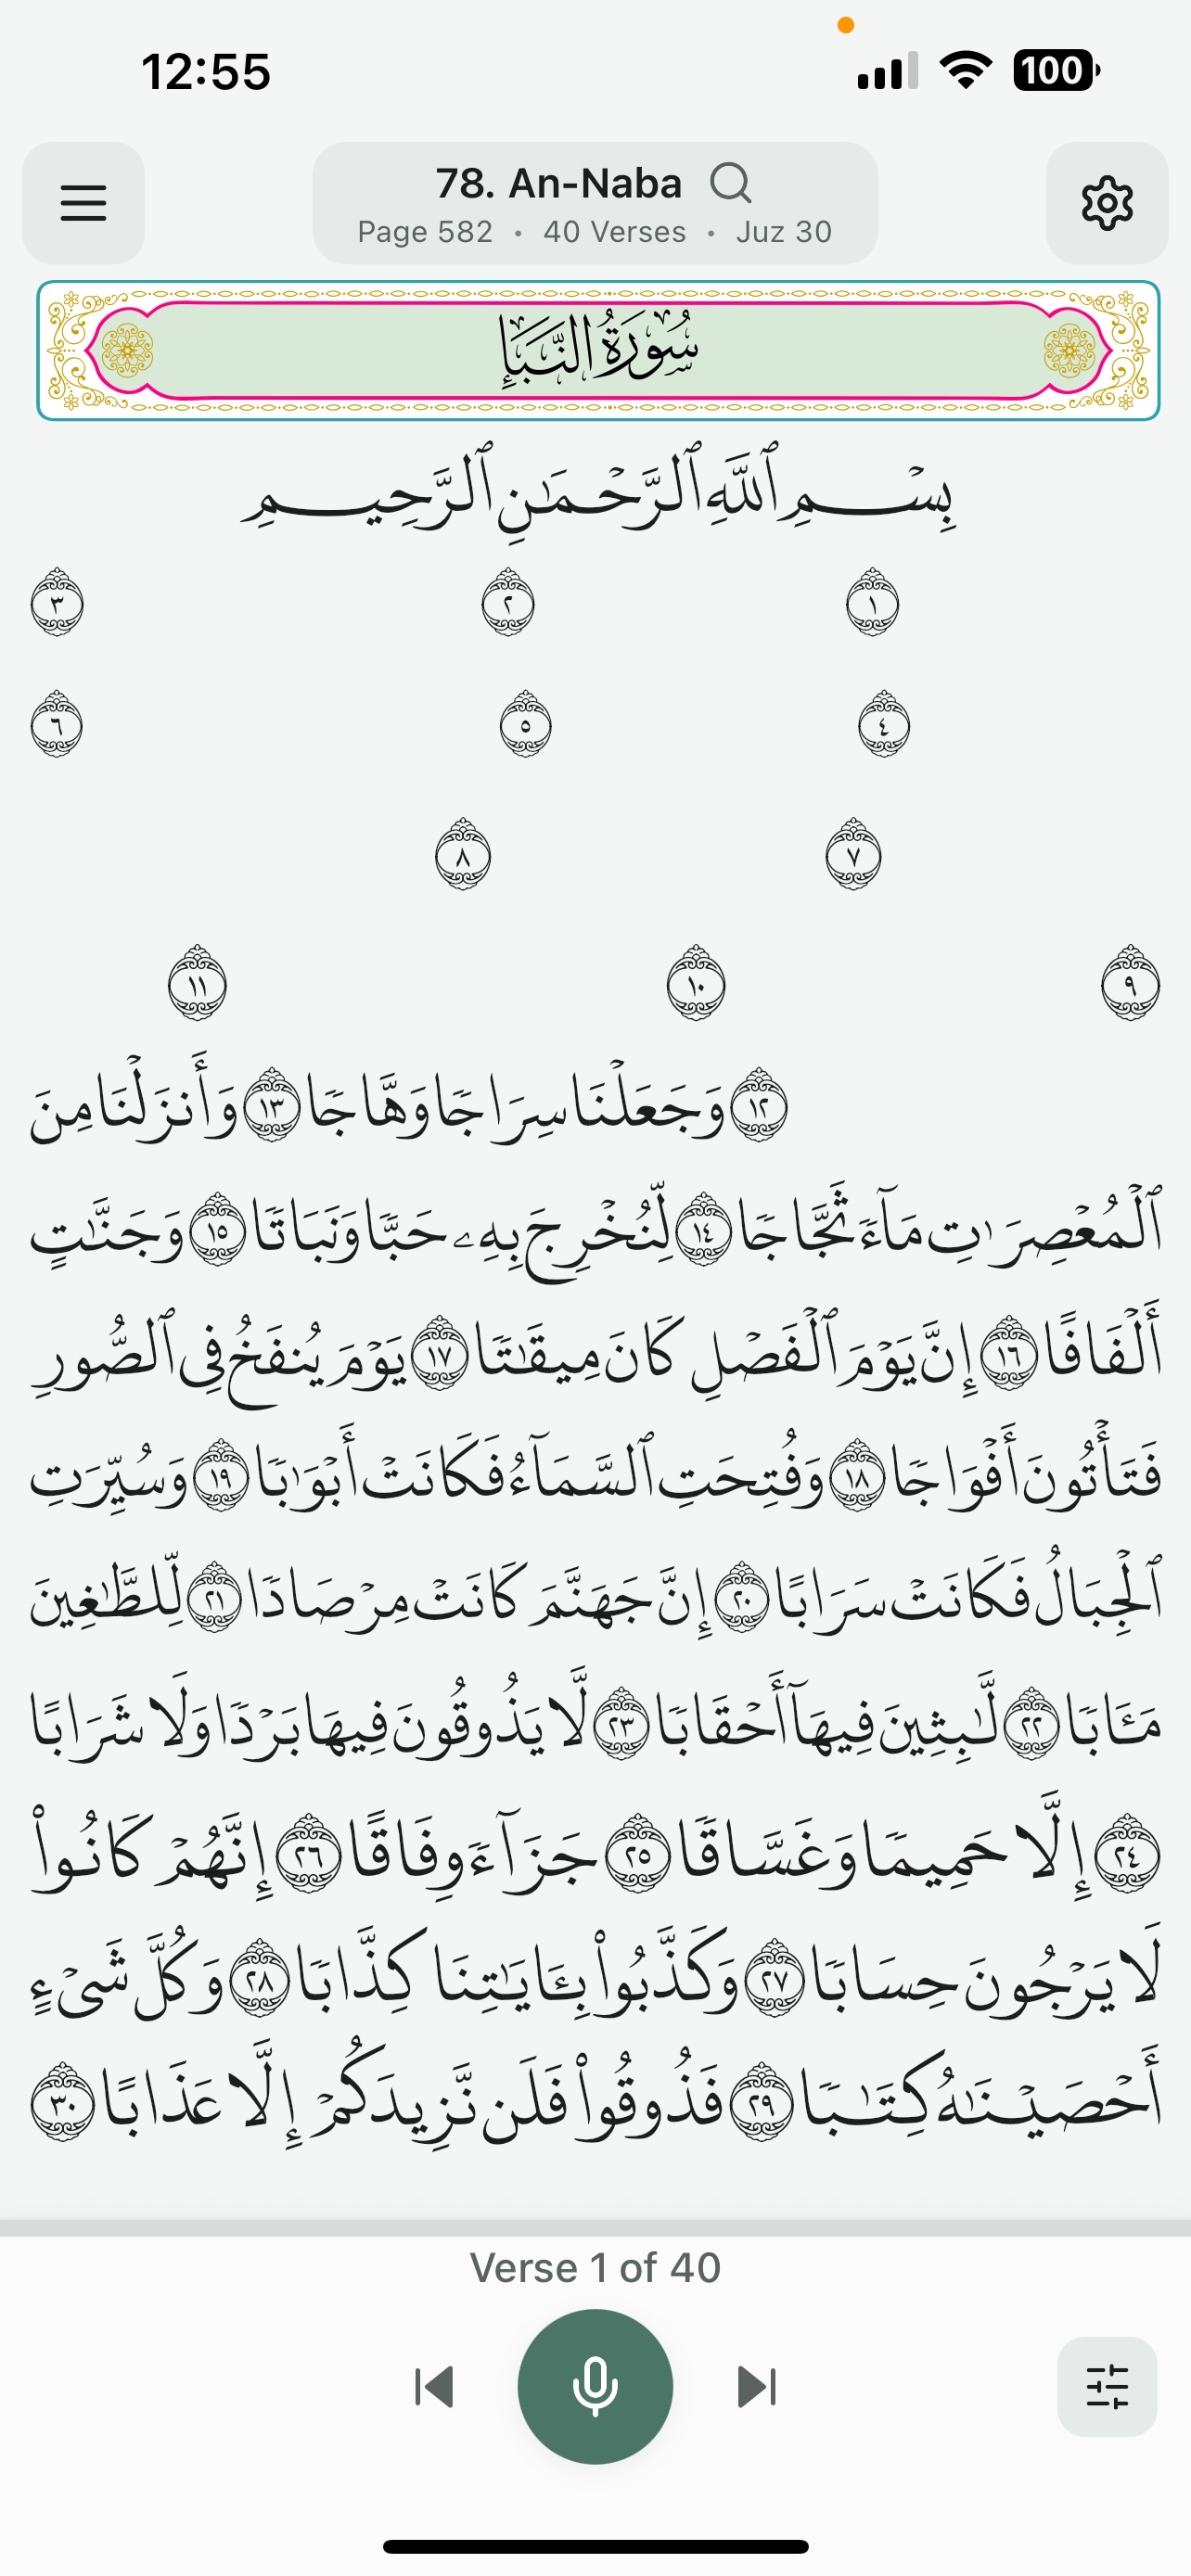 12:55
100
78. An-Naba
Page 582 • 40 Verses • Juz 30
سُورَةُ النَّبَإِ
بِسْمِ ٱللَّهِ ٱلرَّحْمَٰنِ ٱلرَّحِيمِ
١ ٢ ٣
٤ ٥ ٦
٧ ٨
٩ ١٠ ١١
١٢ وَجَعَلْنَا سِرَاجًا وَهَّاجًا ١٣ وَأَنزَلْنَا مِنَ
ٱلْمُعْصِرَٰتِ مَآءً ثَجَّاجًا ١٤ لِّنُخْرِجَ بِهِۦ حَبًّا وَنَبَاتًا ١٥ وَجَنَّٰتٍ
أَلْفَافًا ١٦ إِنَّ يَوْمَ ٱلْفَصْلِ كَانَ مِيقَٰتًا ١٧ يَوْمَ يُنفَخُ فِى ٱلصُّورِ
فَتَأْتُونَ أَفْوَاجًا ١٨ وَفُتِحَتِ ٱلسَّمَآءُ فَكَانَتْ أَبْوَٰبًا ١٩ وَسُيِّرَتِ
ٱلْجِبَالُ فَكَانَتْ سَرَابًا ٢٠ إِنَّ جَهَنَّمَ كَانَتْ مِرْصَادًا ٢١ لِّلطَّٰغِينَ
مَـَٔابًا ٢٢ لَّٰبِثِينَ فِيهَآ أَحْقَابًا ٢٣ لَّا يَذُوقُونَ فِيهَا بَرْدًا وَلَا شَرَابًا
٢٤ إِلَّا حَمِيمًا وَغَسَّاقًا ٢٥ جَزَآءً وِفَاقًا ٢٦ إِنَّهُمْ كَانُوا۟
لَا يَرْجُونَ حِسَابًا ٢٧ وَكَذَّبُوا۟ بِـَٔايَٰتِنَا كِذَّابًا ٢٨ وَكُلَّ شَىْءٍ
أَحْصَيْنَٰهُ كِتَٰبًا ٢٩ فَذُوقُوا۟ فَلَن نَّزِيدَكُمْ إِلَّا عَذَابًا ٣٠
Verse 1 of 40